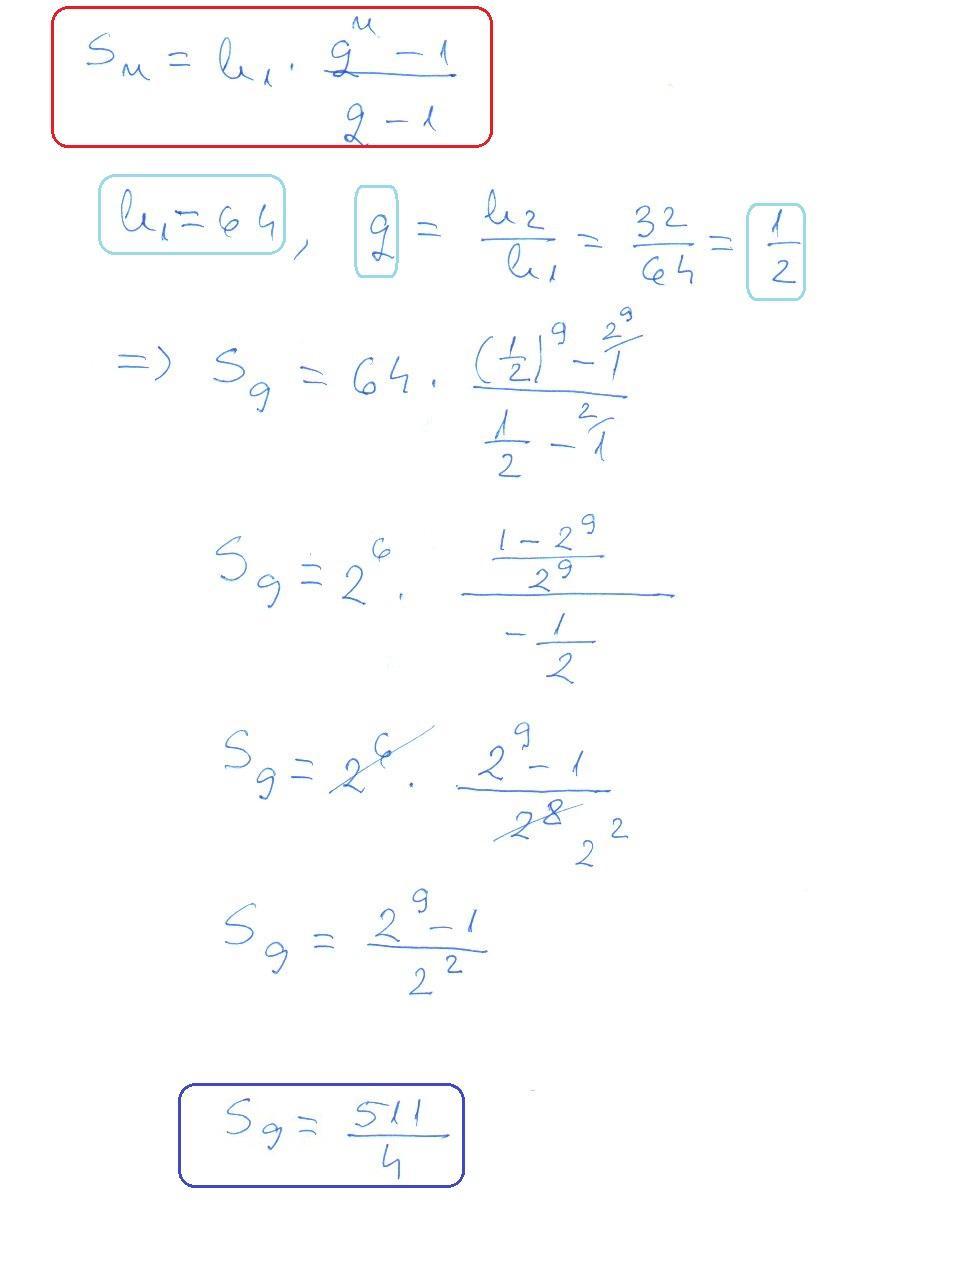 Sₙ = b₁ · (qⁿ - 1)/(q - 1)
b₁ = 64, q = b₂/b₁ = 32/64 = 1/2
=> S₉ = 64 · ((1/2)⁹ - ²⁹⁄1)/(1/2 - ²⁄1)
S₉ = 2⁶ · ((1 - 2⁹)/2⁹)/(-1/2)
S₉ = 2⁶ · (2⁹ - 1)/2⁸ 2²
S₉ = (2⁹ - 1)/2²
S₉ = 511/4